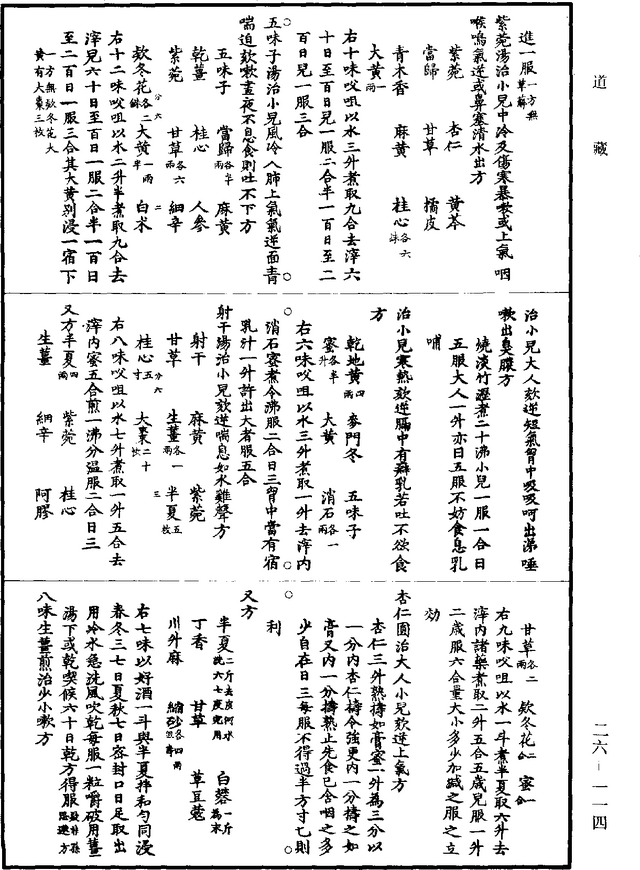 道藏
進一服一方無萆薢
紫菀湯治小兒中冷及傷寒暴嗽或上氣咽
喉嗚氣逆或鼻塞清水出方
紫菀 杏仁 黃芩
當歸 甘草 橘皮
青木香 麻黃 桂心各六銖
大黃一兩
右十味㕮咀以水三升煮取九合去滓六
十日至百日兒一服二合半一百日至二
百日兒一服三合
五味子湯治小兒風冷入肺上氣氣逆面青
喘迫欬嗽晝夜不息食則吐不下方
五味子 當歸各半兩 麻黃
乾薑 桂心 人參
紫菀 甘草各六 細辛
欬冬花各二分六銖 大黃一兩半 白朮二
右十二味㕮咀以水二升半煮取九合去
滓兒六十日至百日一服二合半一百日
至二百日一服三合其大黃別浸一宿下
一方無欬冬花大
黃有大棗三枚
治小兒大人欬逆短氣胷中吸吸呵出涕唾
嗽出臭膿方
燒淡竹瀝煮二十沸小兒一服一合日
五服大人一升亦日五服不妨食息乳
哺
治小兒寒熱欬逆膈中有癖乳若吐不欲食
方
乾地黃四兩 麥門冬 五味子
蜜各半升 大黃 消石各一兩
右六味㕮咀以水三升煮取一升去滓內
消石蜜煮令沸服二合日三胷中當有宿
乳汁一升許出大者服五合
射干湯治小兒欬逆喘息如水雞聲方
射干 麻黃 紫菀
甘草 生薑各一兩 半夏五枚
桂心五寸 大棗二十枚
右八味㕮咀以水七升煮取一升五合去
滓內蜜五合煎一沸分溫服二合日三
又方半夏四兩 紫菀 桂心
生薑 細辛 阿膠
甘草各二兩 欬冬花二合 蜜一合
右九味㕮咀以水一斗煮半夏取六升去
滓內諸藥煮取二升五合五歲兒服一升
二歲服六合量大小多少加減之服之立
効
杏仁圓治大人小兒欬逆上氣方
杏仁三升熟擣如膏蜜一升為三分以
一分內杏仁擣令強更內一分擣之如
膏又內一分擣熟止先食已含咽之多
少自在日三每服不得過半方寸匕則
利
又方
半夏二斤去皮河水洗六七度完用 白礬一斤為末
丁香 甘草 草豆蔲
川升麻 縮砂各四兩麤擣
右七味以好酒一斗與半夏拌和勻同浸
春冬三七日夏秋七日密封口日足取出
用冷水急洗風吹乾每服一粒嚼破用薑
湯下或乾喫候六十日乾方得服
八味生薑煎治少小嗽方
二六－一一四